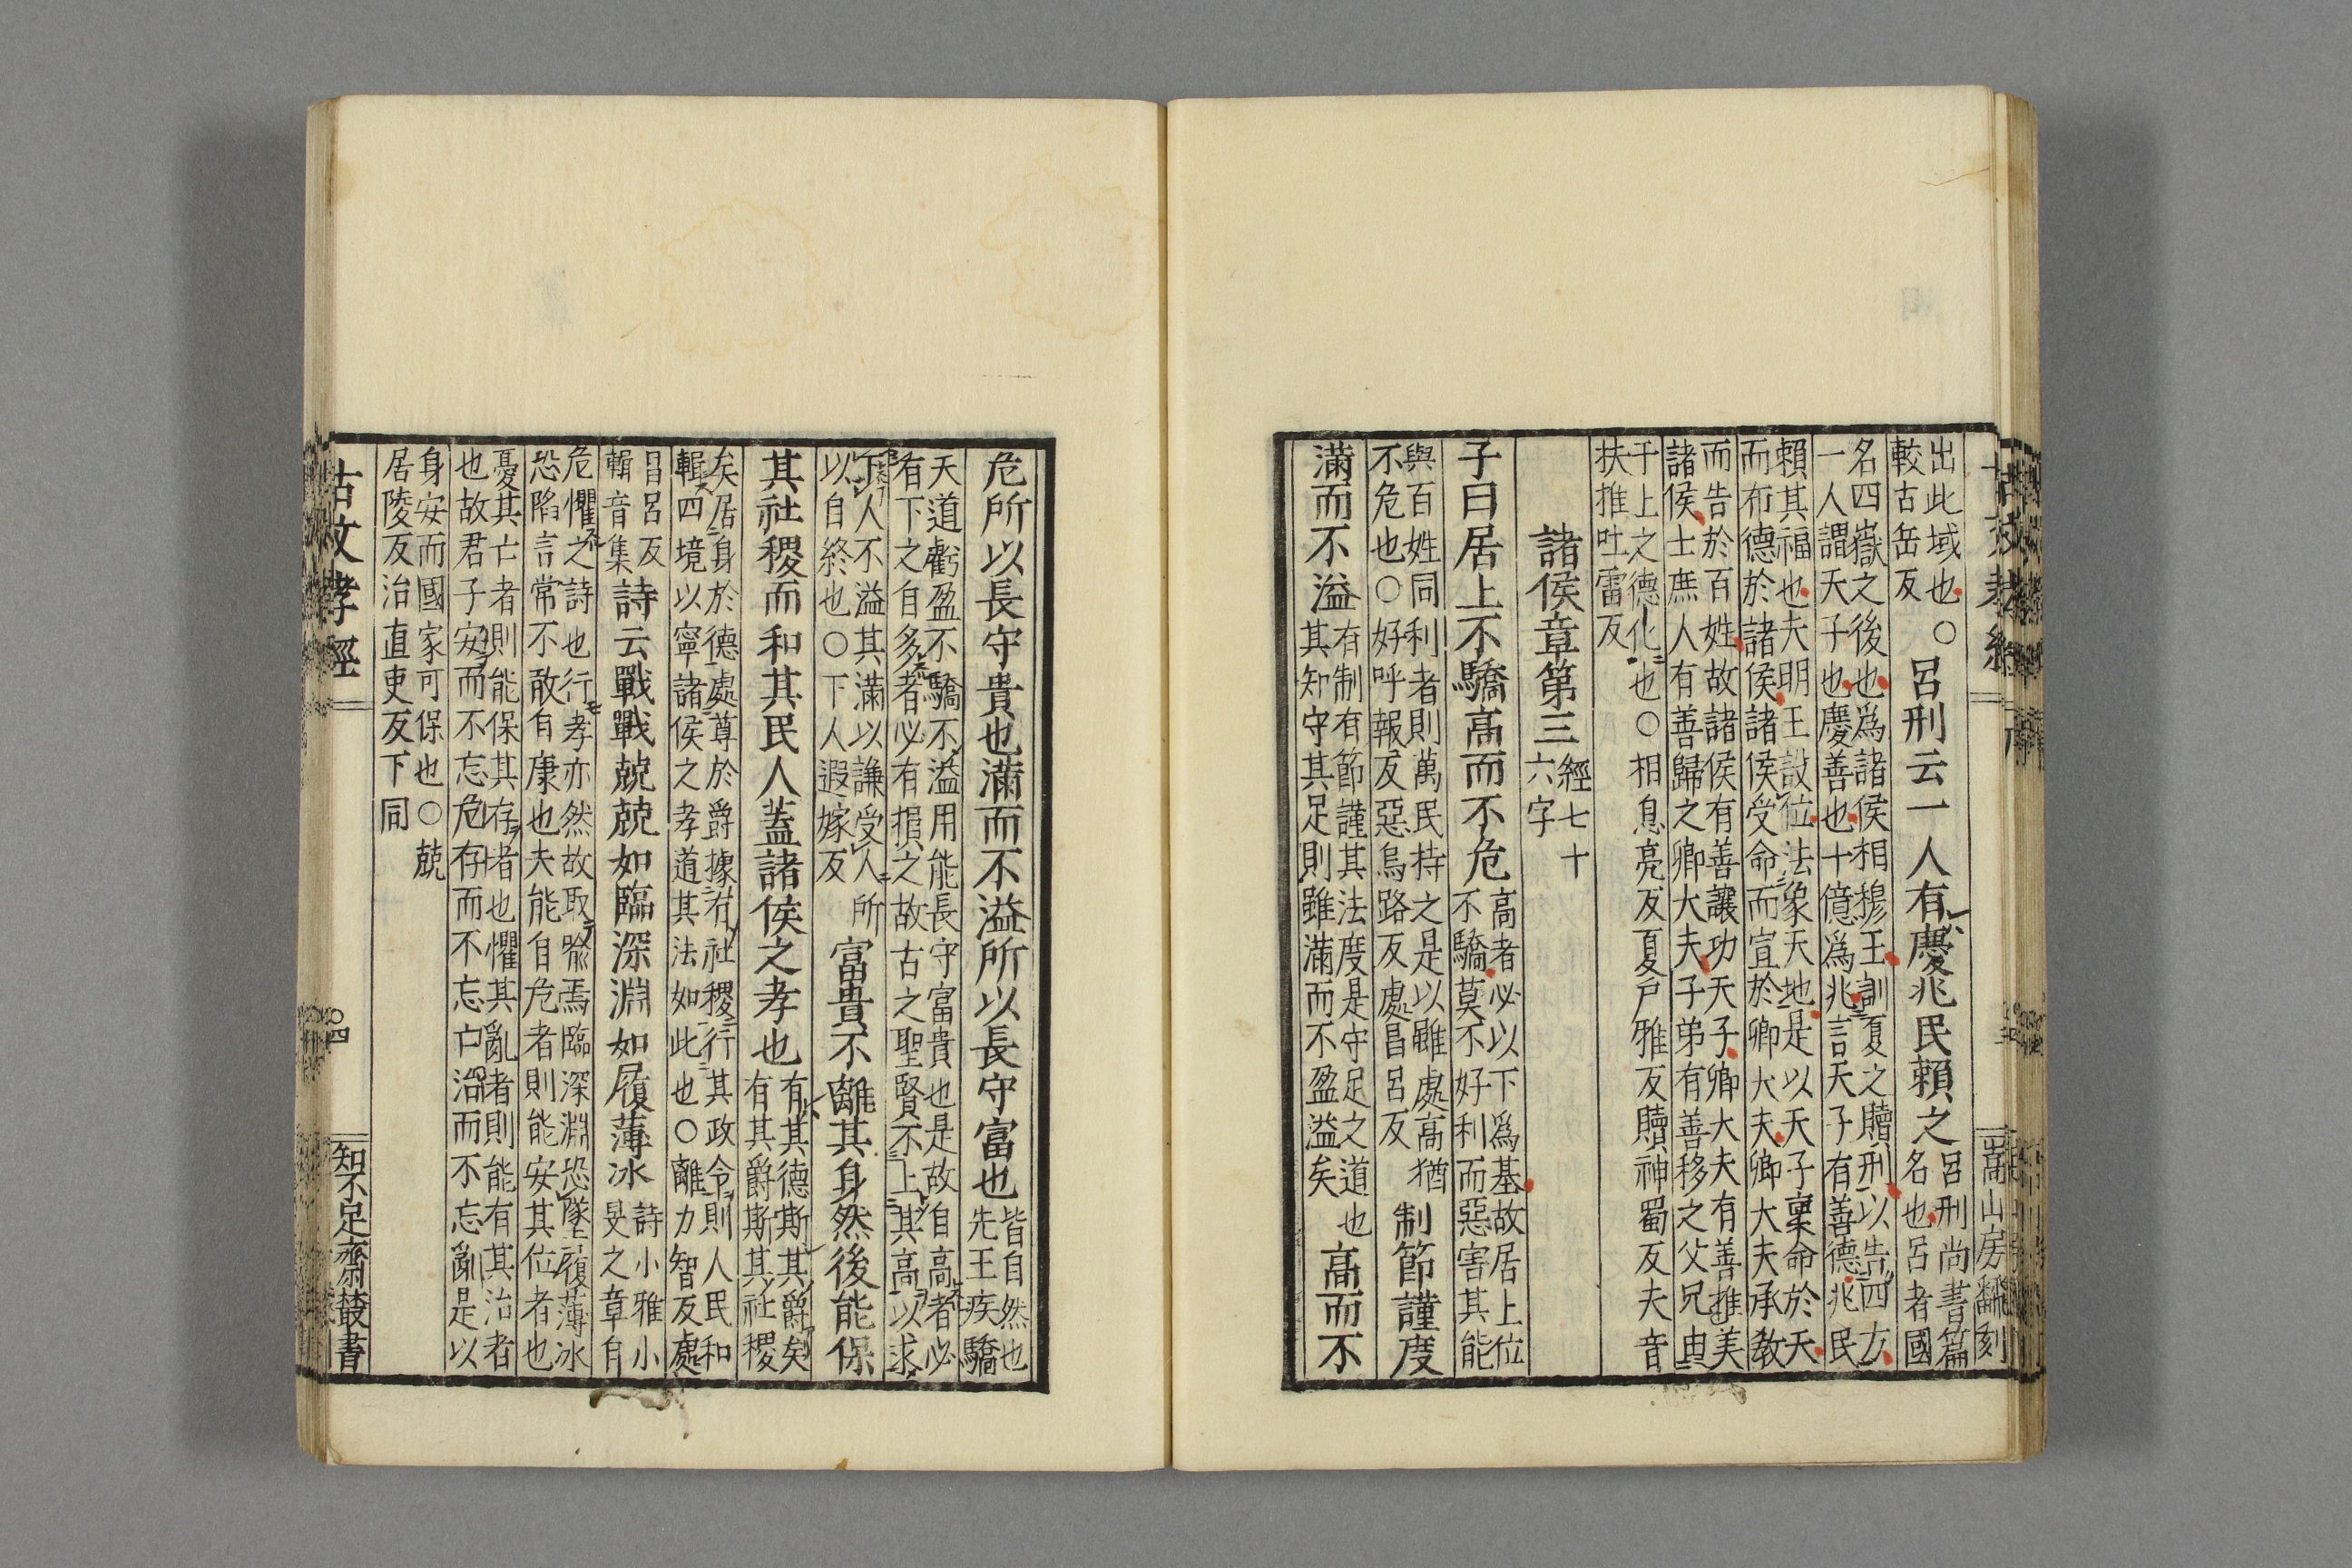 出此域也〇
較古岳反
呂刑云一人有慶兆民賴之
呂刑尚書篇
名也呂者國
名四嶽之後也爲諸侯相穆王訓夏之贖刑以告四方
一人謂天子也慶善也十億爲兆言天子有善德兆民
賴其福也夫明王設位法象天地是以天子稟命於天
而布德於諸侯諸侯受命而宣於卿大夫卿大夫承教
而告於百姓故諸侯有善讓功天子卿大夫有善推美
諸侯士庶人有善歸之卿大夫子弟有善移之父兄由
于上之德化也〇相息亮反夏戶雅反贖神蜀反夫音
扶推吐雷反
諸侯章第三
經七十
六字
子曰居上不驕高而不危
高者必以下爲基故居上位
不驕莫不好利而惡害其能
與百姓同利者則萬民持之是以雖處高猶
不危也〇好呼報反惡烏路反處昌呂反
制節謹度
滿而不溢
有制有節謹其法度是守足之道也
其知守其足則雖滿而不盈溢矣
高而不
嵩山房翻刻
危所以長守貴也滿而不溢所以長守富也
皆自然也
先王疾驕
天道虧盈不驕不溢用能長守富貴也是故自高者必
有下之自多者必有損之故古之聖賢不上其高以求
下人不溢其滿以謙受人所
以自終也〇下人遐嫁反
富貴不離其身然後能保
其社稷而和其民人蓋諸侯之孝也
有其德斯其爵矣
有其爵斯其社稷
矣居身於德處尊於爵據有社稷行其政令則人民和
輯四境以寧諸侯之孝道其法如此也〇離力智反處
昌呂反
輯音集
詩云戰戰兢兢如臨深淵如履薄冰
詩小雅小
旻之章自
危懼之詩也行孝亦然故取喩焉臨深淵恐墜履薄冰
恐陷言常不敢自康也夫能自危者則能安其位者也
憂其亡者則能保其存者也懼其亂者則能有其治者
也故君子安而不忘危存而不忘亡治而不忘亂是以
身安而國家可保也〇兢
居陵反治直吏反下同
古文孝經
四
知不足齋叢書